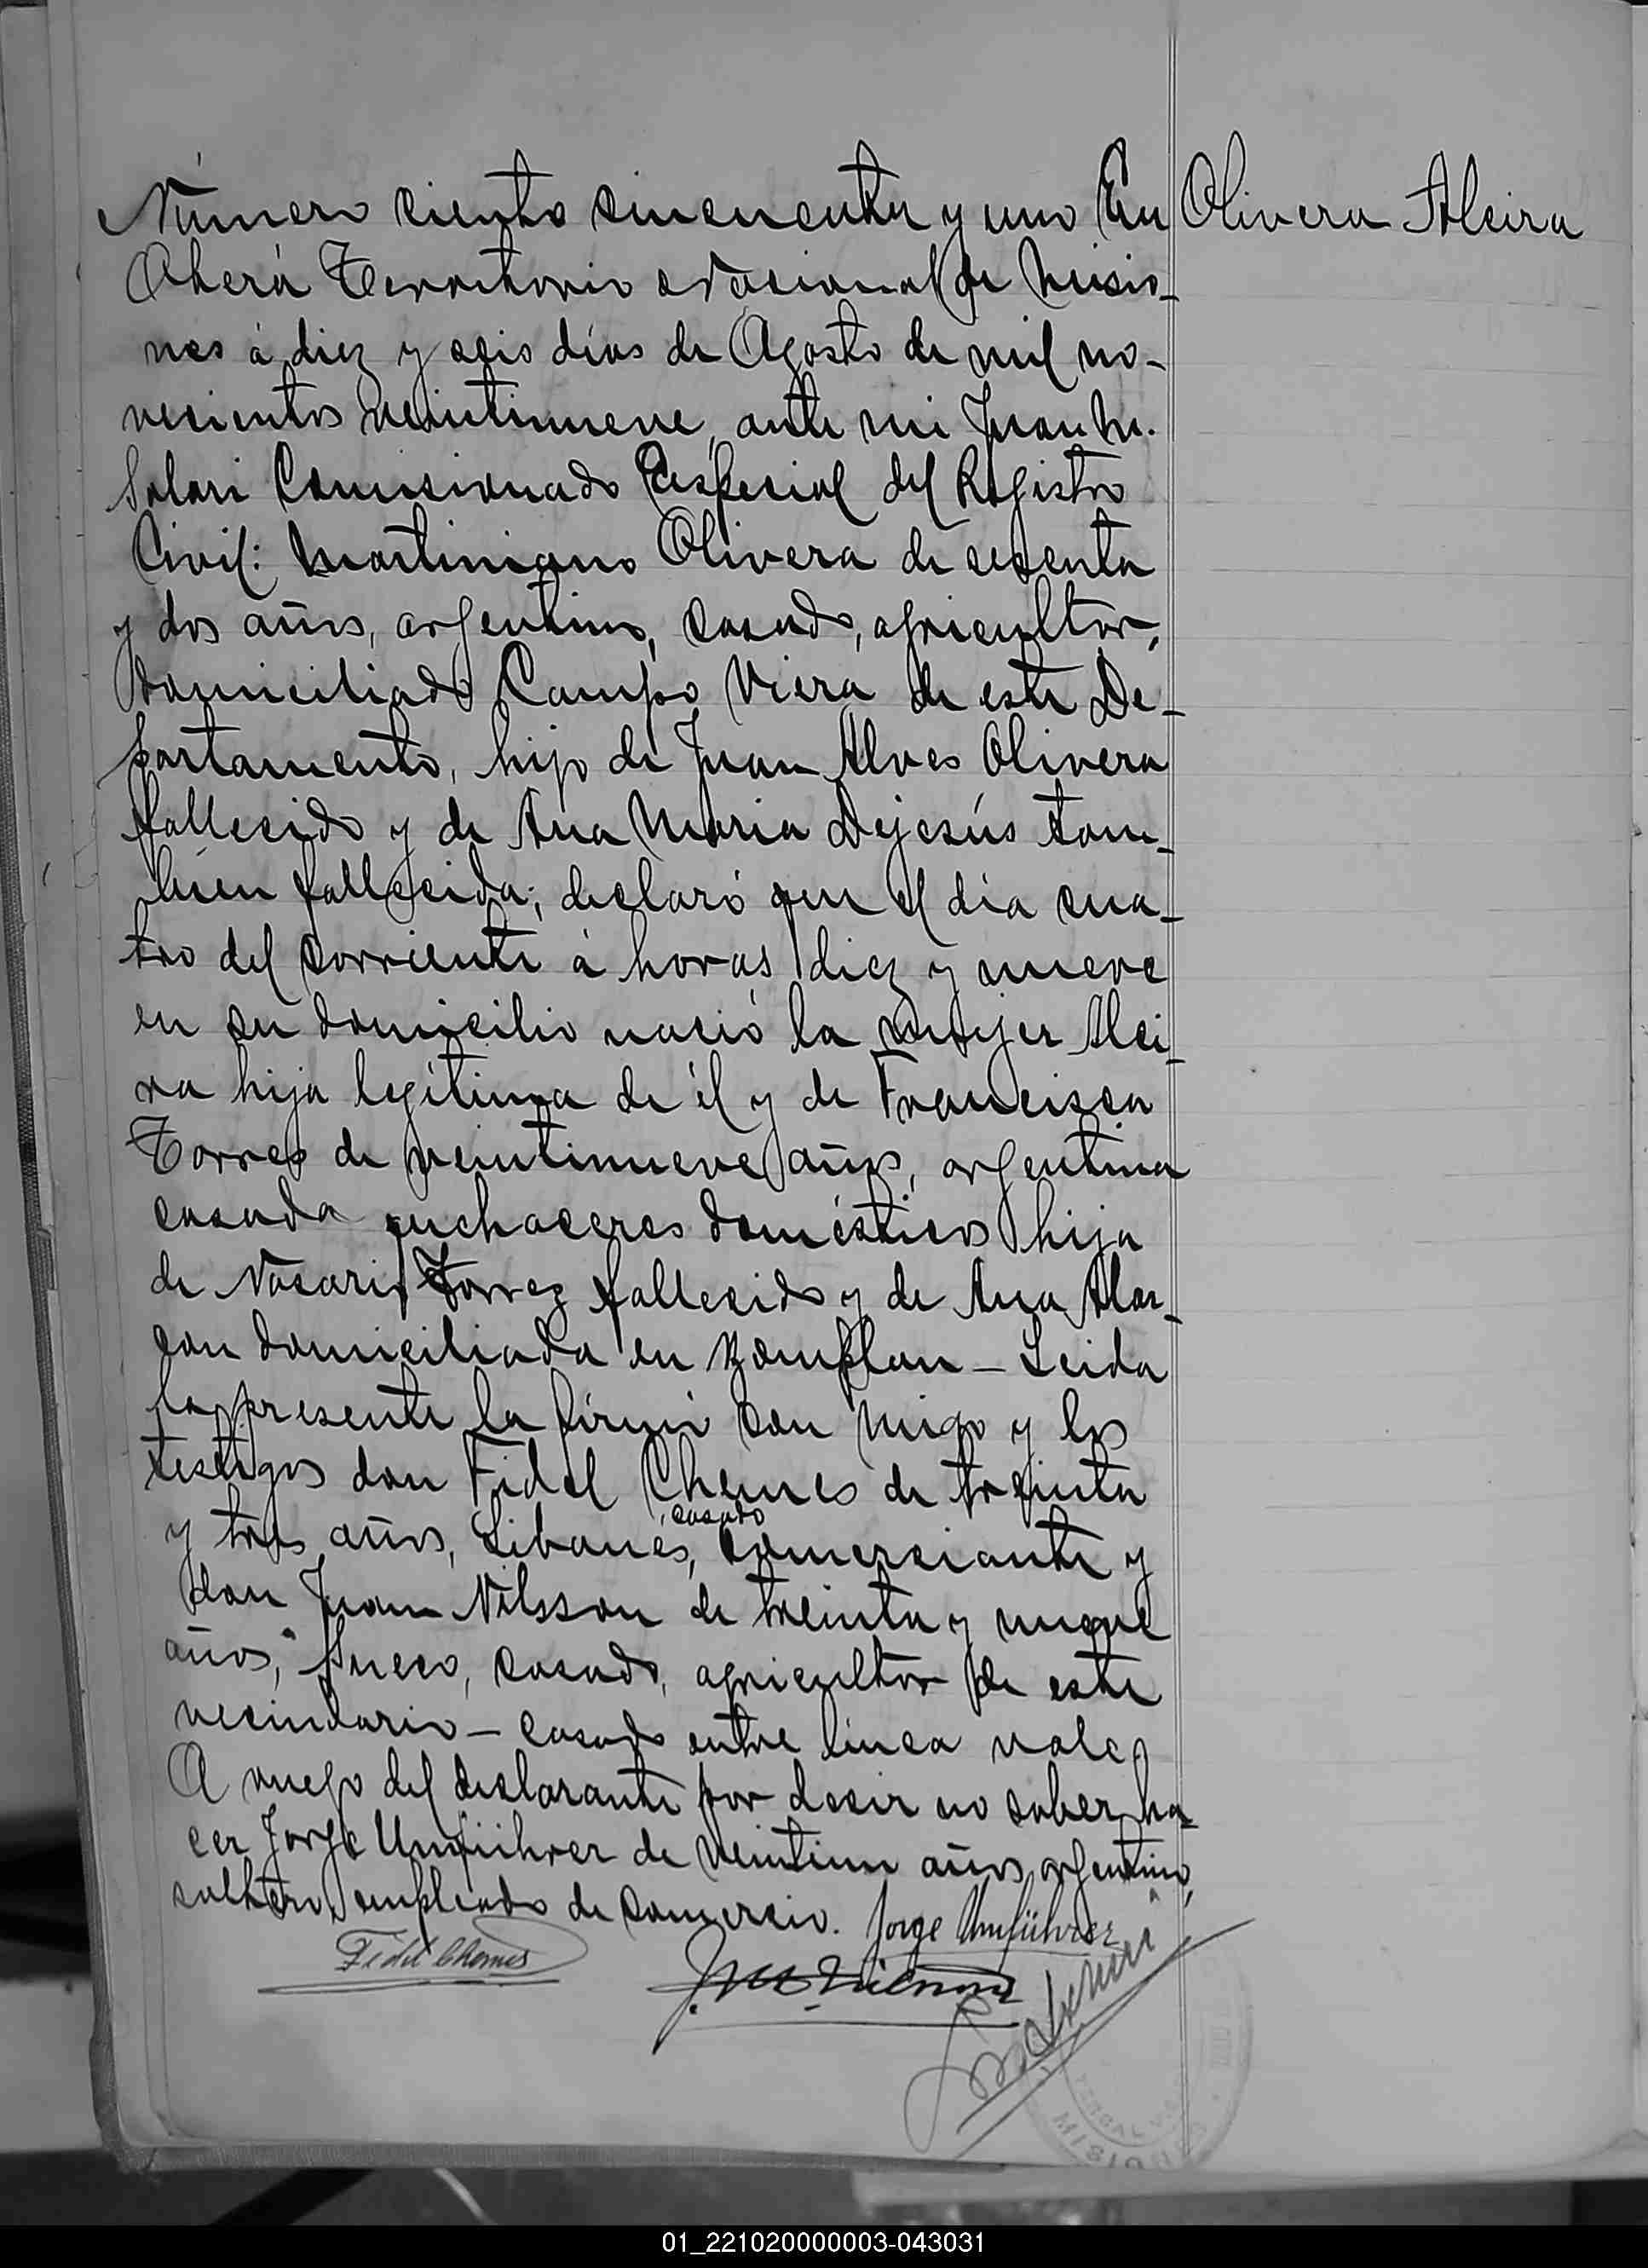 Número ciento cincuenta y uno En
Olivera Alcira
Oberá Territorio Nacional de Misio-
nes á diez y seis días de Agosto de mil no-
vecientos veintinueve, ante mi Juan M.
Solari Comisionado Especial del Registro
Civil: Martiniano Olivera de sesenta
y dos años, argentino, casado, agricultor,
domiciliado Campo Viera de este De-
partamento, hijo de Juan Alves Olivera
fallecido y de Ana Maria Dejesús tam-
bien fallecida; declaró que el día cua-
tro del corriente á horas diez y nueve
en su domicilio nació la mujer Alci-
ra hija legítima de él y de Francisca
Torres de veintinueve años, argentina
casada quehaceres domésticos hija
de Torrez fallecido y de Ana Alar-
con domiciliada en - Leida
la presente la firmó con migo y los
testigos don Fidel Chemes de treinta
casado
y tres años, Libanés, comerciante y
don Juan Nilsson de treinta y nueve
años, Sueco, casado, agricultor de este
vecindario - casado entre linea vale
A ruego del declarante por decir no saber ha-
cer Jorge Umführer de veintiun años, argentino,
soltero, empleado de comercio. Jorge Umführer
Fidel Chemes
MISIONES
01_221020000003-043031